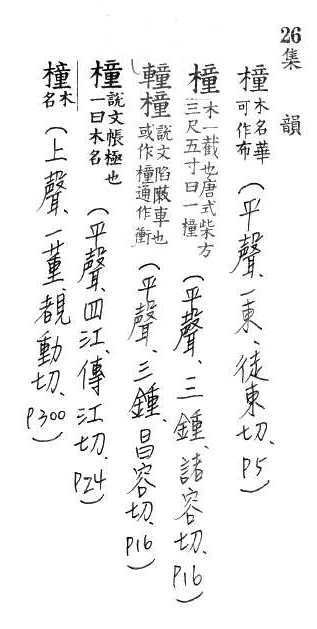 26集 韻
橦木名華可作布(平聲、一東、徒東切、P5)
橦木一截也唐式柴方三尺五寸曰一橦(平聲、三鍾、諸容切、P16)
䡴橦說文陷敶車也或作橦通作衝(平聲、三鍾、昌容切、P16)
橦說文帳極也一曰木名(平聲、四江、傳江切、P24)
橦木名(上聲、一董、覩動切、P300)